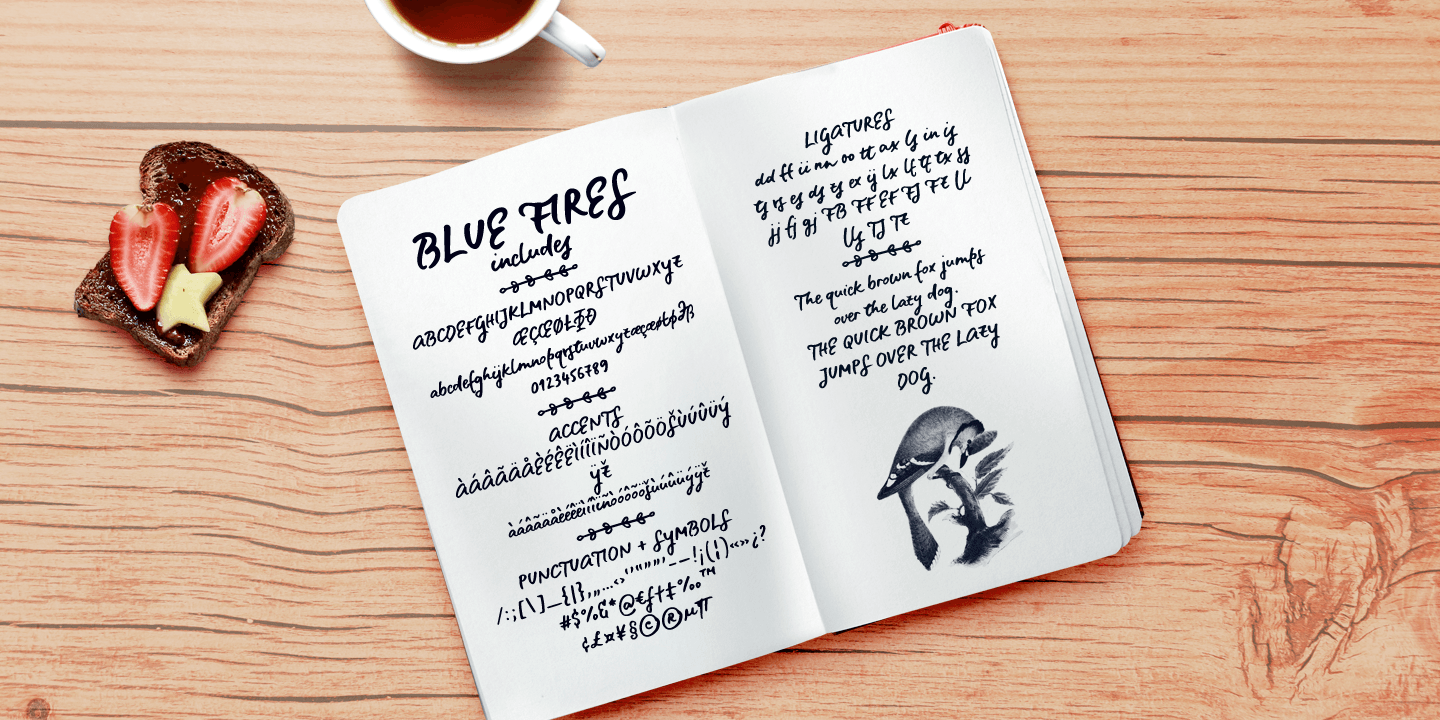 BLUE FIRES
includes
ABCDEFGHIJKLMNOPQRSTUVWXYZ
ÆÇŒØŁÐ
abcdefghijklmnopqrstuvwxyzæçœøłþðß
0123456789
ACCENTS
ÀÁÂÃÄÅÈÉÊËÌÍÎÏÑÒÓÔÕÖŠÙÚÛÜÝ
ŸŽ
àáâãäåèéêëìíîïñòóôõöšùúûüýÿž
PUNCTUATION + SYMBOLS
/:;[\]_{|},„…‹›‘’“”"'–—!¡(¦)«»¿?
#$%&*@€ƒ†‡‰™
¢£¤¥§©®µπ
LIGATURES
dd ff ii nn oo tt ax is in ij
tj rs es ds zs ex ij lx lf tf tx ss
jj fj gj FB FF EF FJ FZ LL
Us TJ TZ
The quick brown fox jumps
over the lazy dog.
THE QUICK BROWN FOX
JUMPS OVER THE LAZY
DOG.